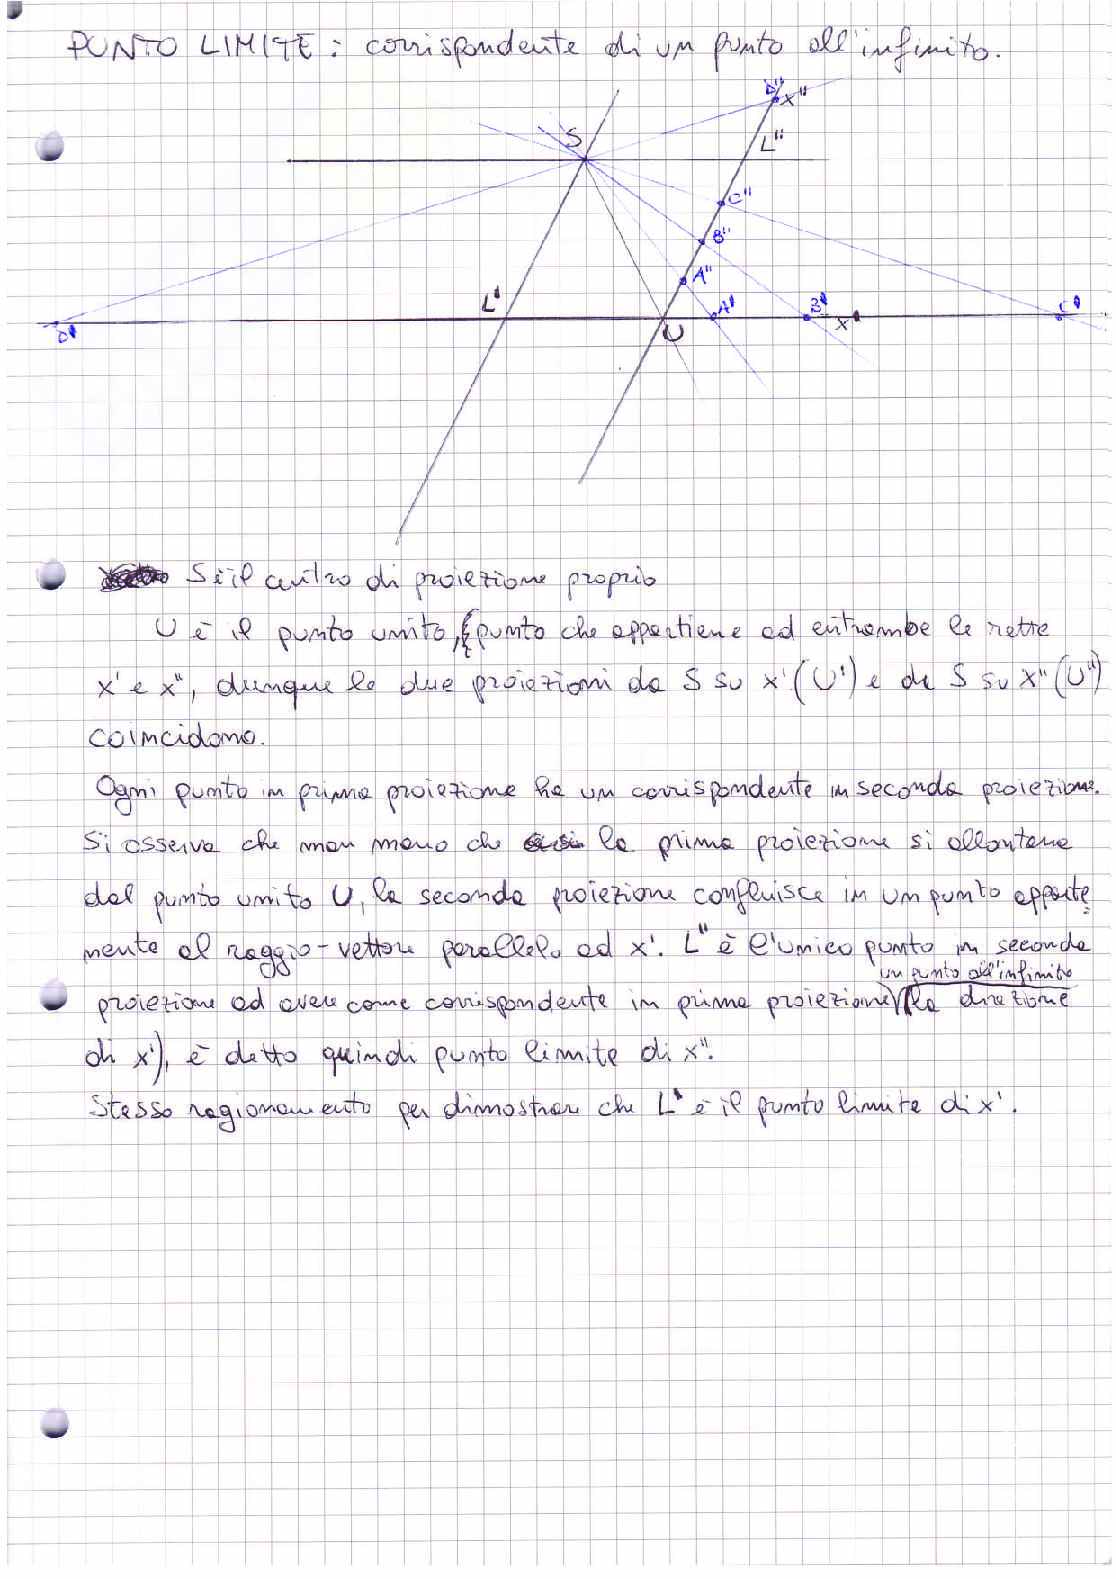 PUNTO LIMITE: corrispondente di un punto all'infinito.
D"
x"
S
L"
C"
B"
A"
L'
A'
B'
C'
D'
U
x'
S è il centro di proiezione proprio
U è il punto unito, punto che appartiene ad entrambe le rette
x' e x", dunque le due proiezioni da S su x' (U') e da S su x" (U")
coincidono.
Ogni punto in prima proiezione ha un corrispondente in seconda proiezione.
Si osserva che man mano che la prima proiezione si allontana
dal punto unito U, la seconda proiezione confluisce in un punto apparte
mente al raggio-vettore parallelo ad x'. L" è l'unico punto in seconda
un punto all'infinito
proiezione ad avere come corrispondente in prima proiezione (la direzione
di x'), è detto quindi punto limite di x".
Stesso ragionamento per dimostrare che L' è il punto limite di x'.